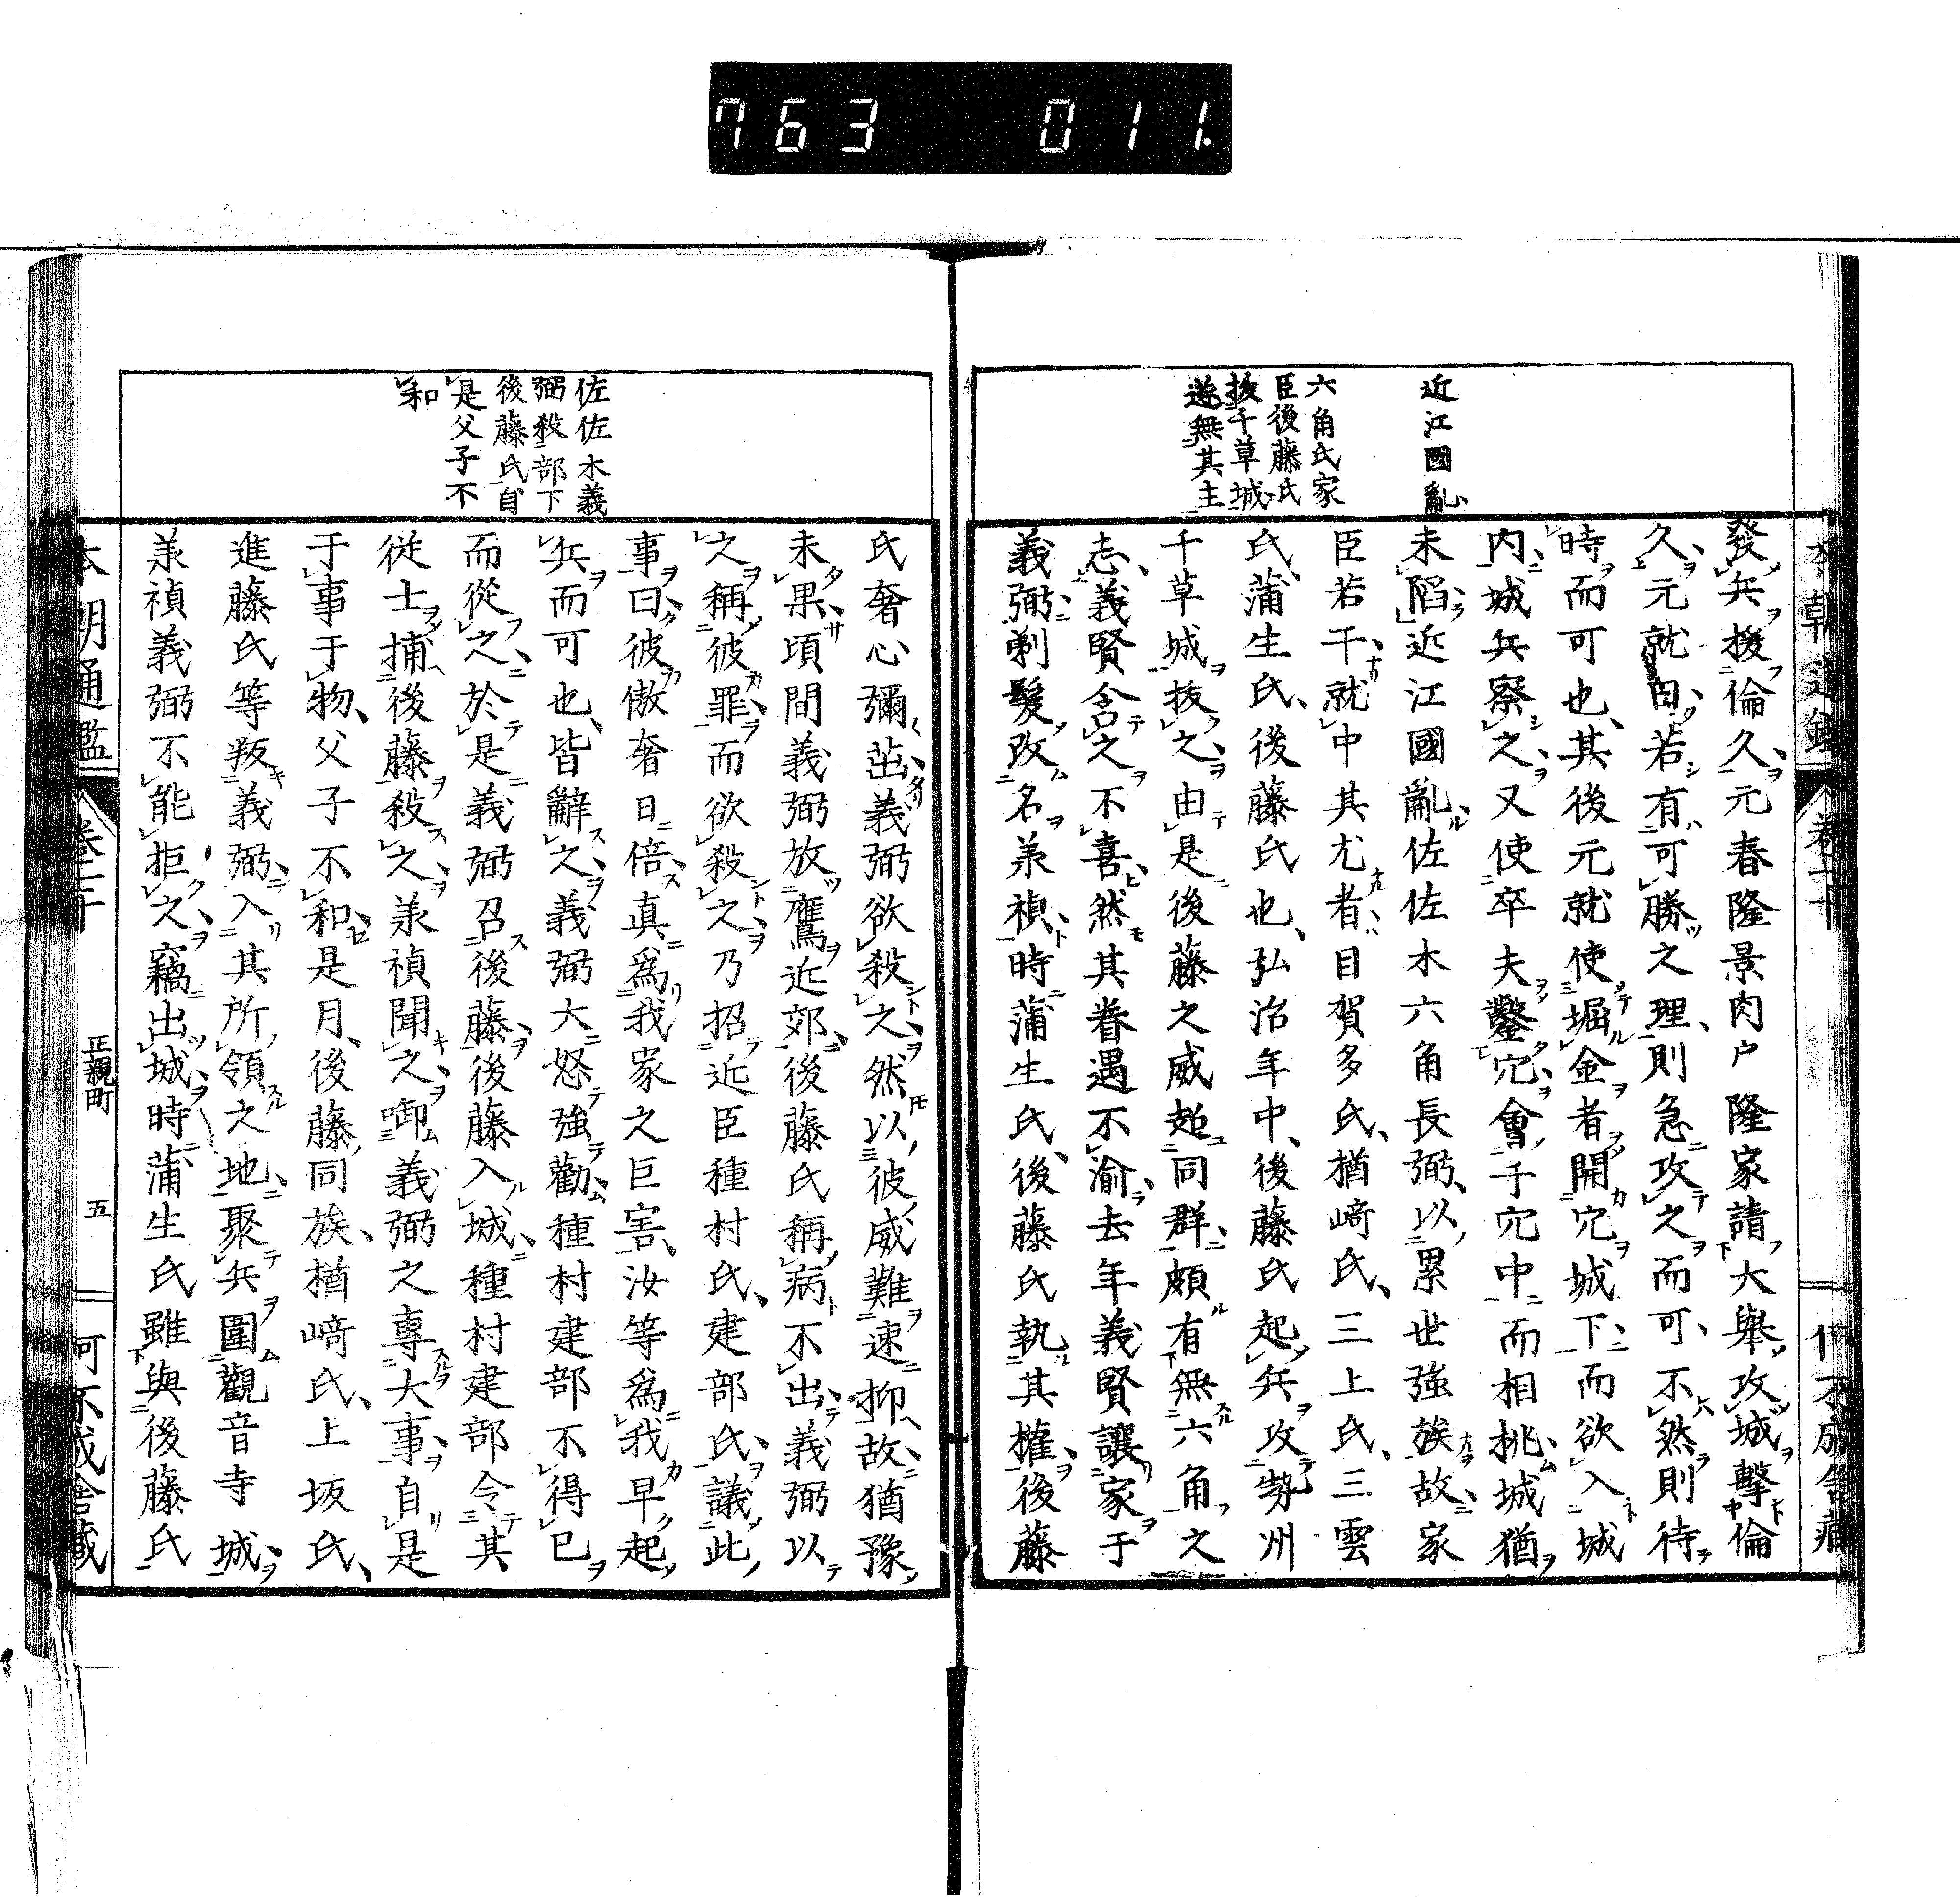 763 011.
近江國亂
六角氏家
臣後藤氏
拔千草城
遂無其主
發兵援倫久元春隆景肉戶隆家請大舉攻城擊倫
久元就曰若有可勝之理則急攻之而可不然則待
時而可也其後元就使堀金者開穴城下而欲入城
內城兵察之又使卒夫鑿穴會于穴中而相挑城猶
未陷近江國亂佐佐木六角長弼以累世強族故家
臣若干就中其尤者目賀多氏楢﨑氏三上氏三雲
氏蒲生氏後藤氏也弘治年中後藤氏起兵攻勢州
千草城拔之由是後藤之威超同群頗有無六角之
志義賢含之不喜然其眷遇不渝去年義賢讓家于
義弼剃髮改名承禎時蒲生氏後藤氏執其權後藤
佐佐木義
弼殺部下
後藤氏自
是父子不
和
氏奢心彌茁義弼欲殺之然以彼威難速抑故猶豫
未果頃間義弼放鷹近郊後藤氏稱病不出義弼以
之稱彼罪而欲殺之乃招近臣種村氏建部氏議此
事曰彼傲奢日倍真爲我家之巨害汝等爲我早起
兵而可也皆辭之義弼大怒強勸種村建部不得已
而從之於是義弼召後藤後藤入城種村建部令其
從士捕後藤殺之承禎聞之啣義弼之專大事自是
于事于物父子不和是月後藤同族楢﨑氏上坂氏
進藤氏等叛義弼入其所領之地聚兵圍觀音寺城
承禎義弼不能拒之竊出城時蒲生氏雖與後藤氏
本朝通鑑
正親町
五